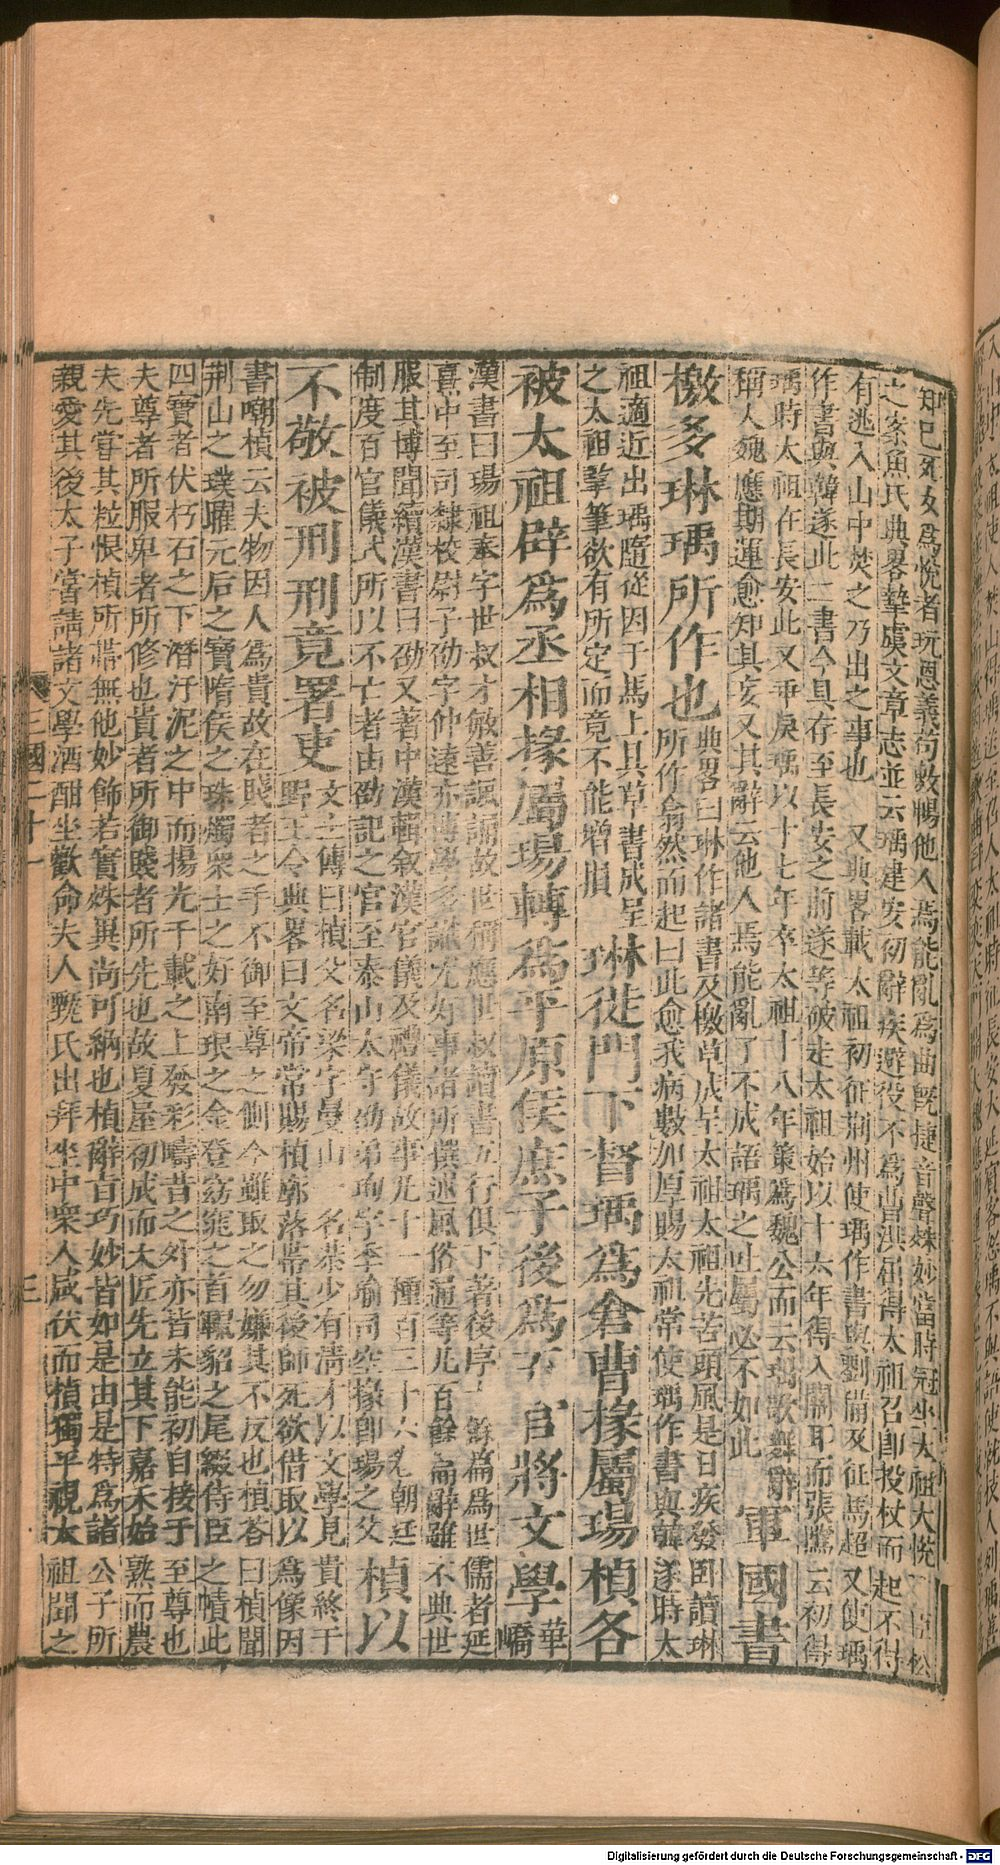 知己死女爲悅者玩恩義苟敷暢他人焉能亂爲曲既捷音聲殊妙當時冠坐太祖大悅 臣松
之案魚氏典畧摯虞文章志並云瑀建安初辭疾避役不爲曹洪屈得太祖召即投杖而起不得
有逃入山中焚之乃出之事也 又典畧載太祖初征荊州使瑀作書與劉備及征馬超又使瑀
作書與韓遂此二書今具存至長安之前遂等破走太祖始以十六年得入關耳而張騭云初得
瑀時太祖在長安此又乖戾瑀以十七年卒太祖十八年策爲魏公而云瑀歌舞辭
稱大魏應期運愈知其妄又其辭云他人焉能亂了不成語瑀之吐屬必不如此
軍國書
檄多琳瑀所作也
典畧曰琳作諸書及檄草成呈太祖太祖先苦頭風是日疾發臥讀琳
所作翕然而起曰此愈我病數加厚賜太祖常使瑀作書與韓遂時太
祖適近出瑀隨從因于馬上具草書成呈
之太祖擥筆欲有所定而竟不能增損
琳徙門下督瑀爲倉曹掾屬瑒楨各
被太祖辟爲丞相掾屬瑒轉爲平原侯庶子後爲五官將文學
華
嶠
漢書曰瑒祖奉字世叔才敏善諷誦故世稱應世叔讀書五行俱下著後序十餘篇爲世儒者延
熹中至司隸校尉子劭字仲遠亦博學多識尤好事諸所撰述風俗通等凡百餘篇辭雖不典世
服其博聞續漢書曰劭又著中漢輯敘漢官儀及禮儀故事凡十一種百三十六卷朝廷
制度百官儀式所以不亡者由劭記之官至泰山太守劭弟珣字季瑜司空掾即瑒之父
楨以
不敬被刑刑竟署吏
文士傳曰楨父名梁字曼山一名恭少有清才以文學見貴終于
野王令典畧曰文帝常賜楨廓落帶其後師死欲借取以爲像因
書嘲楨云夫物因人爲貴故在賤者之手不御至尊之側今雖取之勿嫌其不反也楨答曰楨聞
荊山之璞曜元后之寶隋侯之珠燭衆士之好南垠之金登窈窕之首鼲貂之尾綴侍臣之幘此
四寶者伏朽石之下潛汙泥之中而揚光千載之上發彩疇昔之外亦皆未能初自接于至尊也
夫尊者所服卑者所修也貴者所御賤者所先也故夏屋初成而大匠先立其下嘉禾始熟而農
夫先嘗其粒恨楨所帶無他妙飾若實殊異尚可納也楨辭旨巧妙皆如是由是特爲諸公子所
親愛其後太子嘗請諸文學酒酣坐歡命夫人甄氏出拜坐中衆人咸伏而楨獨平視太祖聞之
三國二十一 三
Digitalisierung gefördert durch die Deutsche Forschungsgemeinschaft - DFG